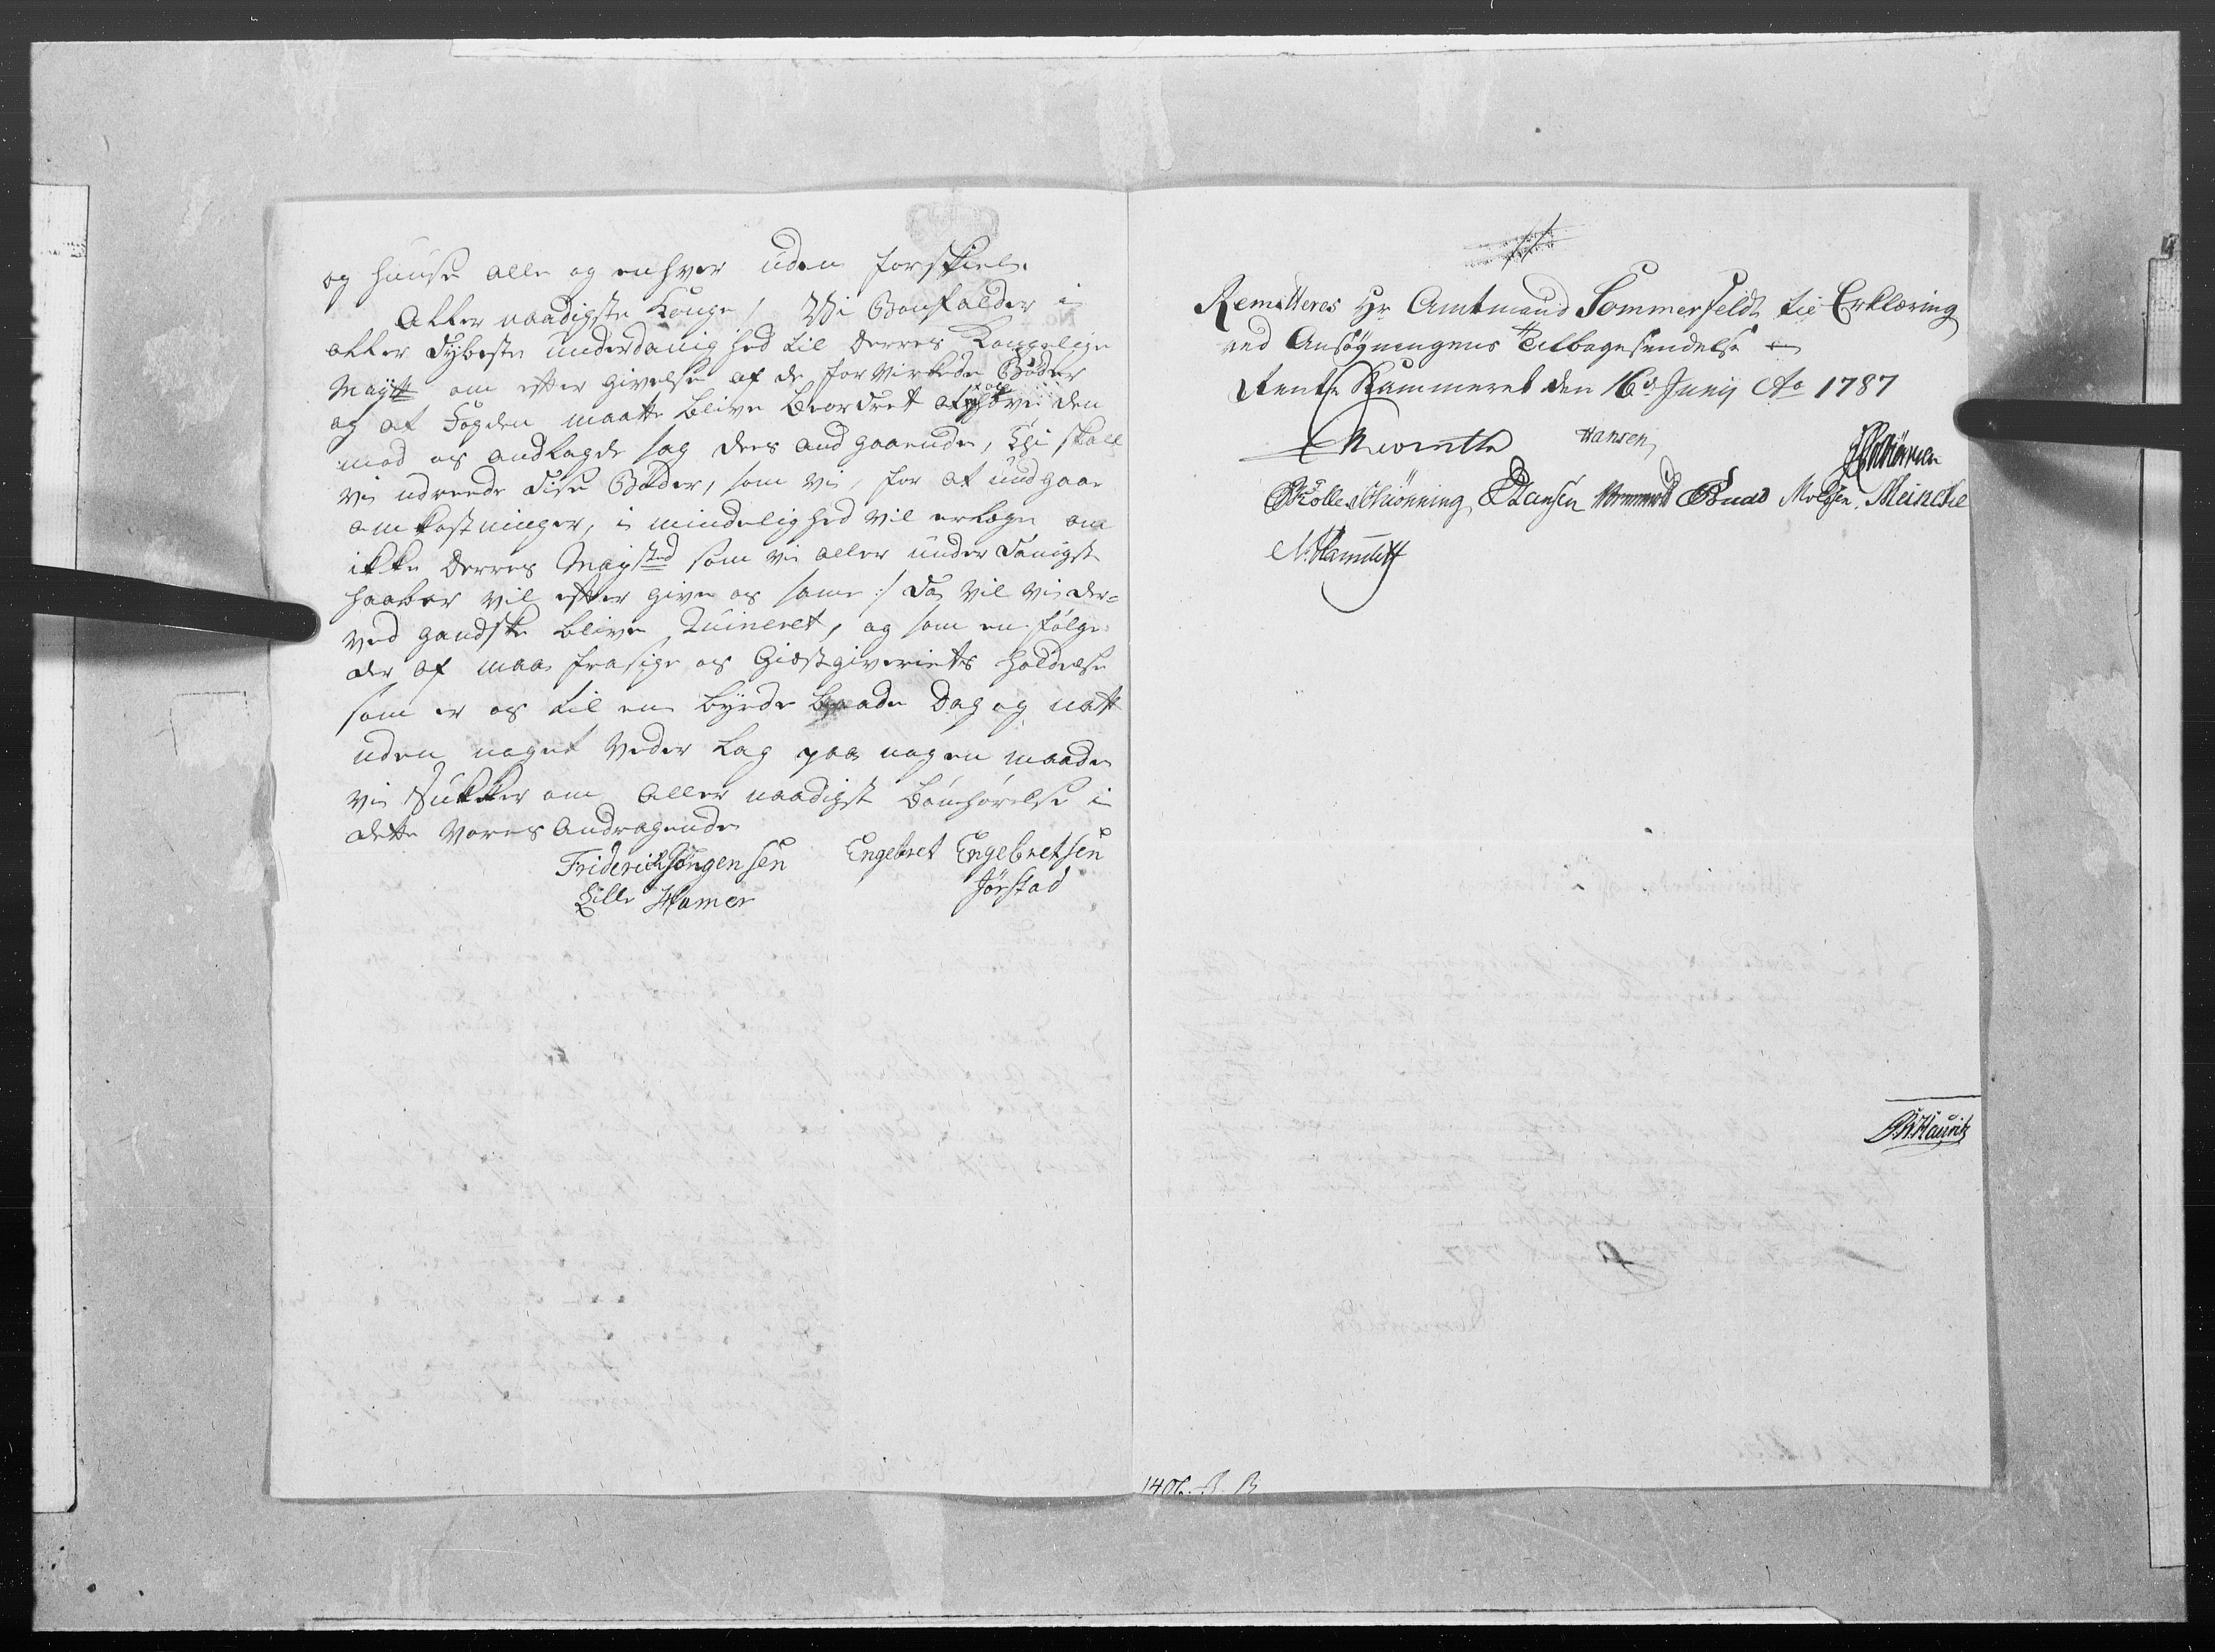 og huuse alle og enhver uden forskiel.
Aller naadigste Konge! Vi Bønfalder i
aller dybeste underdanighed til Deres Kongelige
Mayts om efter givelse af de forvirkede Bøder
og at Fogden maatte blive beordret at ophøve den
mod os andlagde sag dees andgaaende, thi skall
vi udreede disse Bøder, som vi, for at undgaae
omkostninger, i mindelighed vil erlegge om
ikke Derres Maysted som vi aller under danigst
haaber vil efter give os same :/ da vil vi der=
ved gandske blive Ruineret, og som en følge
der af maae frasige os Giæstgiveriets holdelse
som er os til en byrde baade Dag og natt
uden noget Veder lag paa nogen maade
vi sukker om aller naadigst bønhørelse i
dette Vores Andragende
Friderich Jørgensen Engebret Engebretsen
Lille Hamer Jørstad
Remitteres Hr Amtmand Sommerfeldt til Erklæring
ved Ansøgningens Tilbagesendelse
Rente Kammeret den 16de Junij Ao 1787
Hansen
Schiønning Hansen Meincke
1406. B